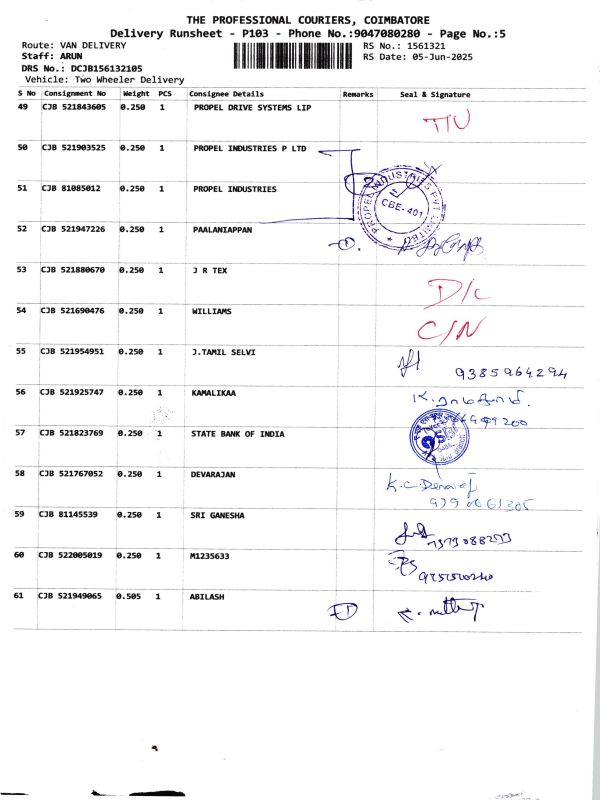 THE PROFESSIONAL COURIERS, COIMBATORE
Delivery Runsheet - P103 - Phone No.:9047080280 - Page No.:5
Route: VAN DELIVERY
RS No.: 1561321
Staff: ARUN
RS Date: 05-Jun-2025
DRS No.: DCJB156132105
Vehicle: Two Wheeler Delivery
S No Consignment No Weight PCS Consignee Details Remarks Seal & Signature
49 CJB 521843605 0.250 1 PROPEL DRIVE SYSTEMS LIP
50 CJB 521903525 0.250 1 PROPEL INDUSTRIES P LTD
51 CJB 81085012 0.250 1 PROPEL INDUSTRIES
PROPEL INDUSTRIES PVT LIMITED
CBE-401
52 CJB 521947226 0.250 1 PAALANIAPPAN
53 CJB 521880670 0.250 1 J R TEX D/C
54 CJB 521690476 0.250 1 WILLIAMS C/N
55 CJB 521954951 0.250 1 J.TAMIL SELVI 9385964294
56 CJB 521925747 0.250 1 KAMALIKAA
57 CJB 521823769 0.250 1 STATE BANK OF INDIA
58 CJB 521767052 0.250 1 DEVARAJAN
59 CJB 81145539 0.250 1 SRI GANESHA
60 CJB 522005019 0.250 1 M1235633
61 CJB 521949065 0.505 1 ABILASH